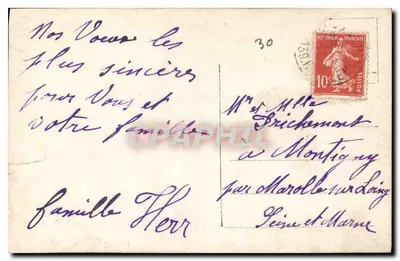 Nos Voeux les
plus sincères
pour Vous et
votre famille
famille Herr
30
REPUBLIQUE FRANÇAISE
10c
POSTES
Mr et Mlle
Frichemont
à Montigny
par Marolle sur Loing
Seine et Marne